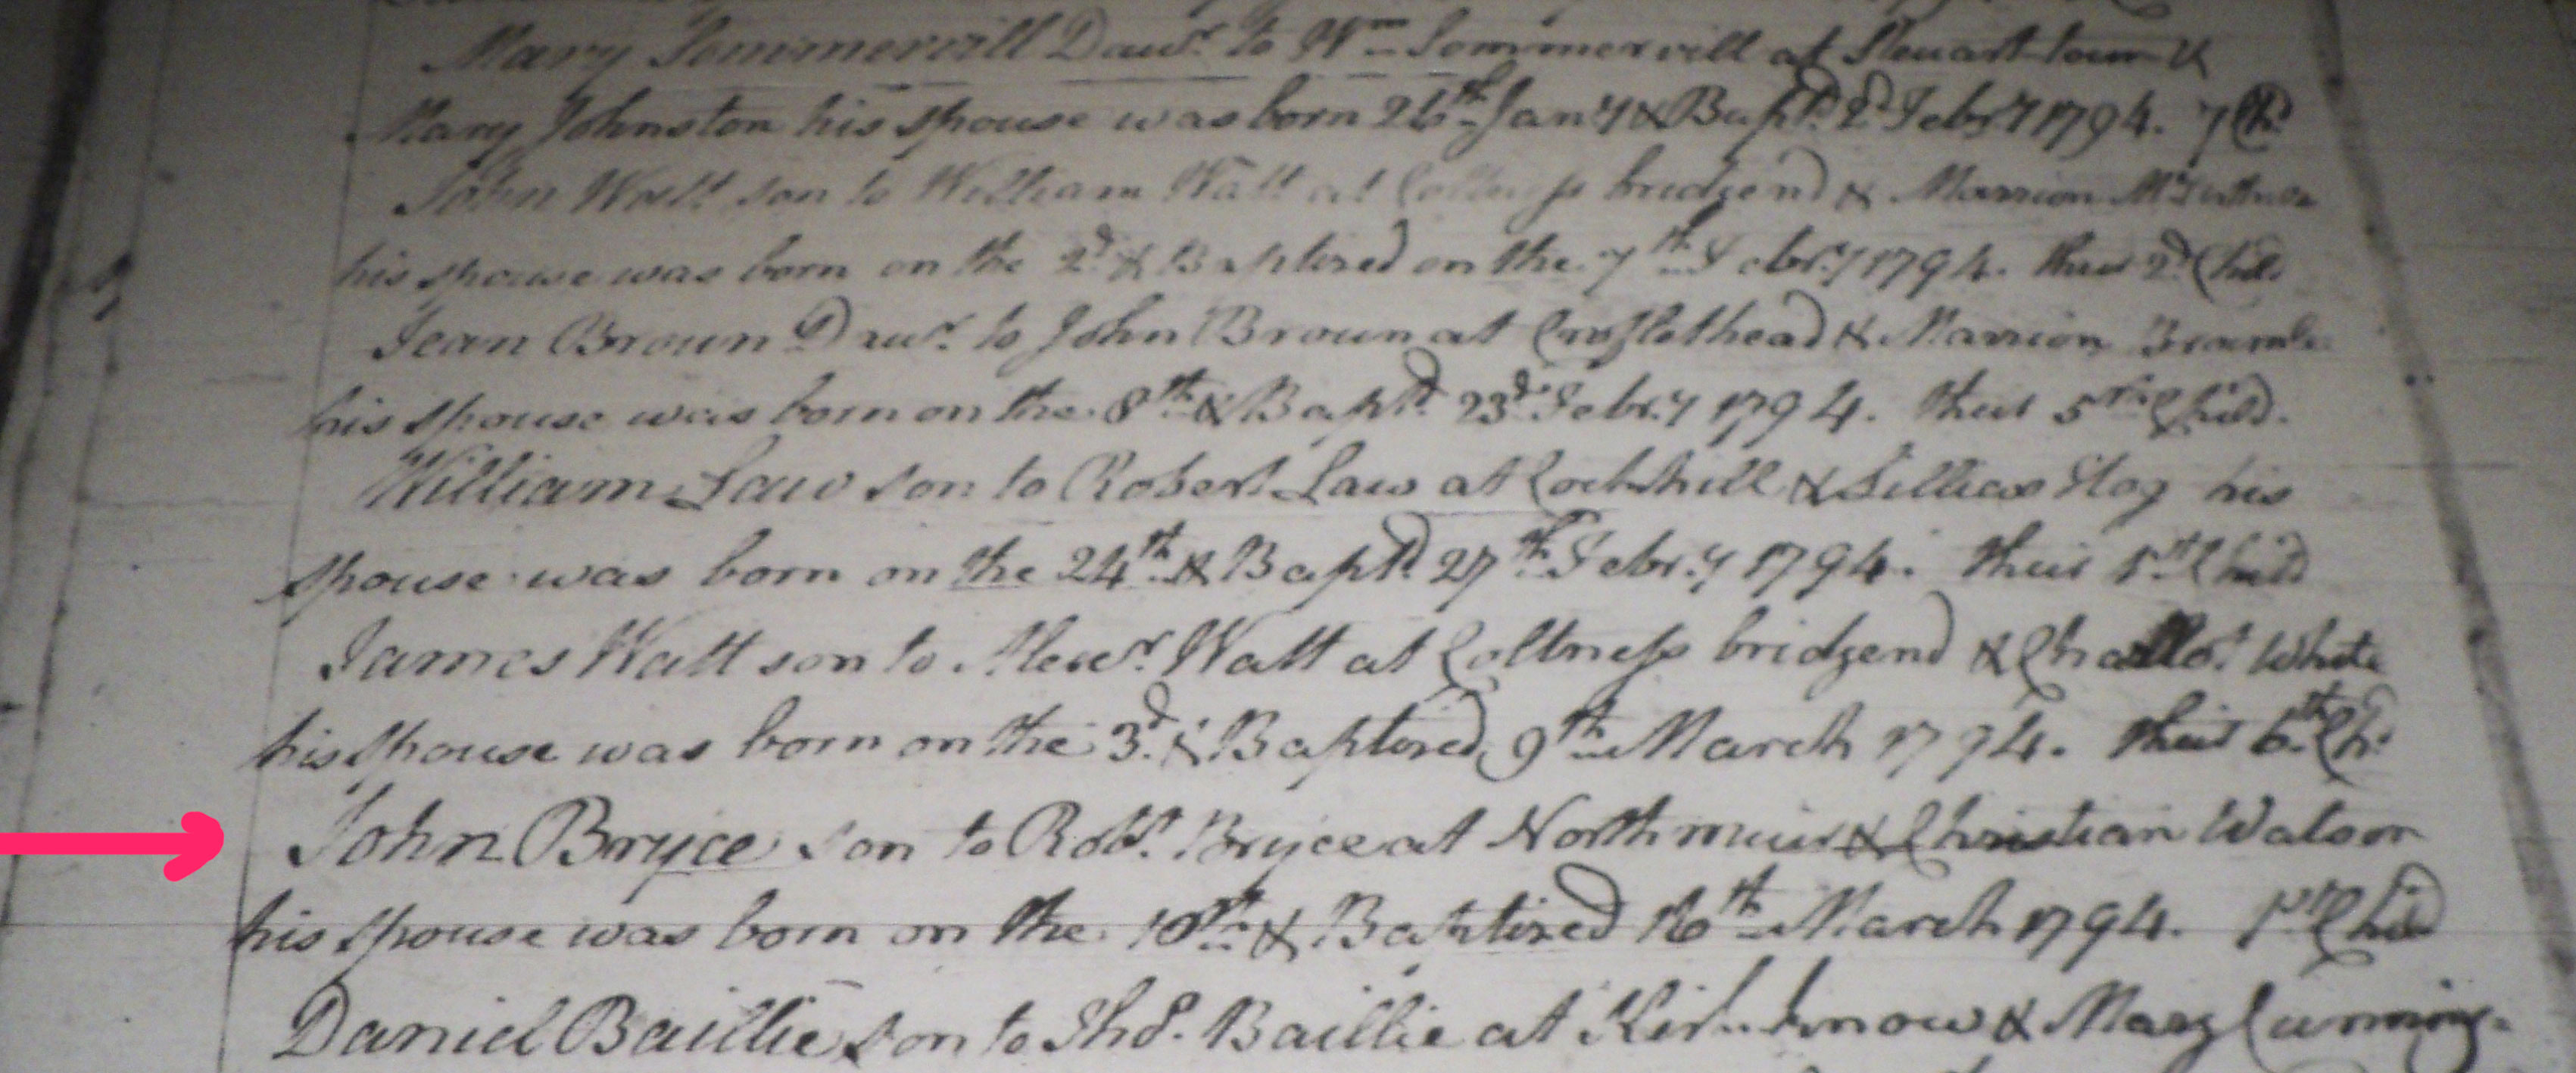 Mary Sommervill Dawr. to Wm Sommervill at Steuart town &
Mary Johnston his spouse was born 26th Jany & Baptd. 2d Febry 1794. 7 Ch.
John Watt son to William Watt at Coltness bridgend & Marrion
his spouse was born on the 2d. & Baptised on the 7th Febry 1794. their 2d. Child
Jean Broun Dawr. to John Broun at & Marrion
his spouse was born on the 8th & Baptd. 23d. Febry 1794. their 5th Child.
William Law son to Robert Law at & Lillias his
spouse was born on the 24th & Baptd 27th Febry 1794. their 1st Child
James Watt son to Alexr. Watt at Coltness bridgend & White
his spouse was born on the 3d. & Baptised 9th March 1794. their 6th Ch.
John Bryce son to Robt. Bryce at Northmuir & Christian Watson
his spouse was born on the 10th & Baptised 16th March 1794. 1st Child
Daniel Baillie son to Tho8. Baillie at & Mary Cunning-